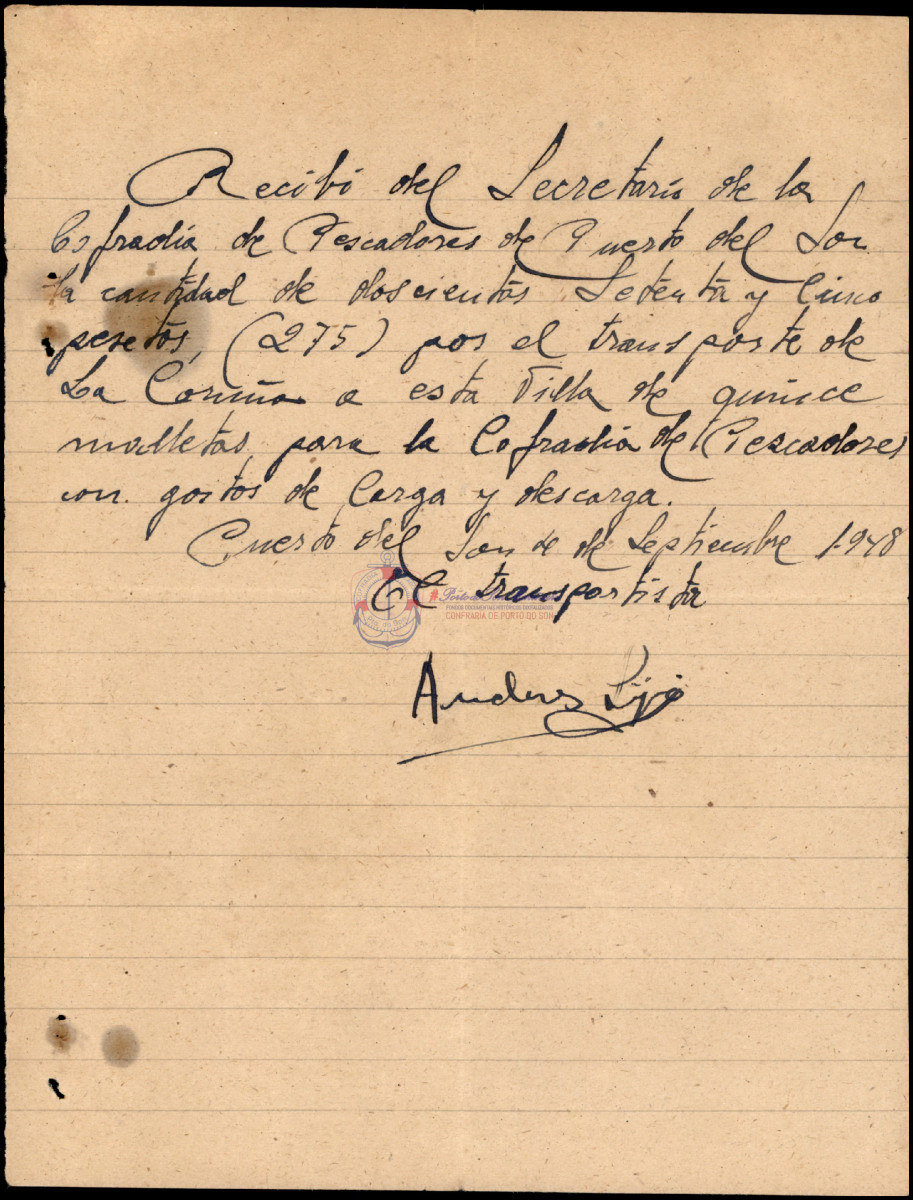 Recibi del Secretario de la
Cofradia de Pescadores de Puerto del Son
la cantidad de doscientas Setenta y Cinco
pesetas, (275) por el transporte de
La Coruña a esta Villa de quince
malletas, para la Cofradia de Pescadores
con gastos de Carga y descarga.
Puerto del Son de Septiembre 1.948
El transportista
CONFRARÍA DE PORTO DO SON
Andres Lijó